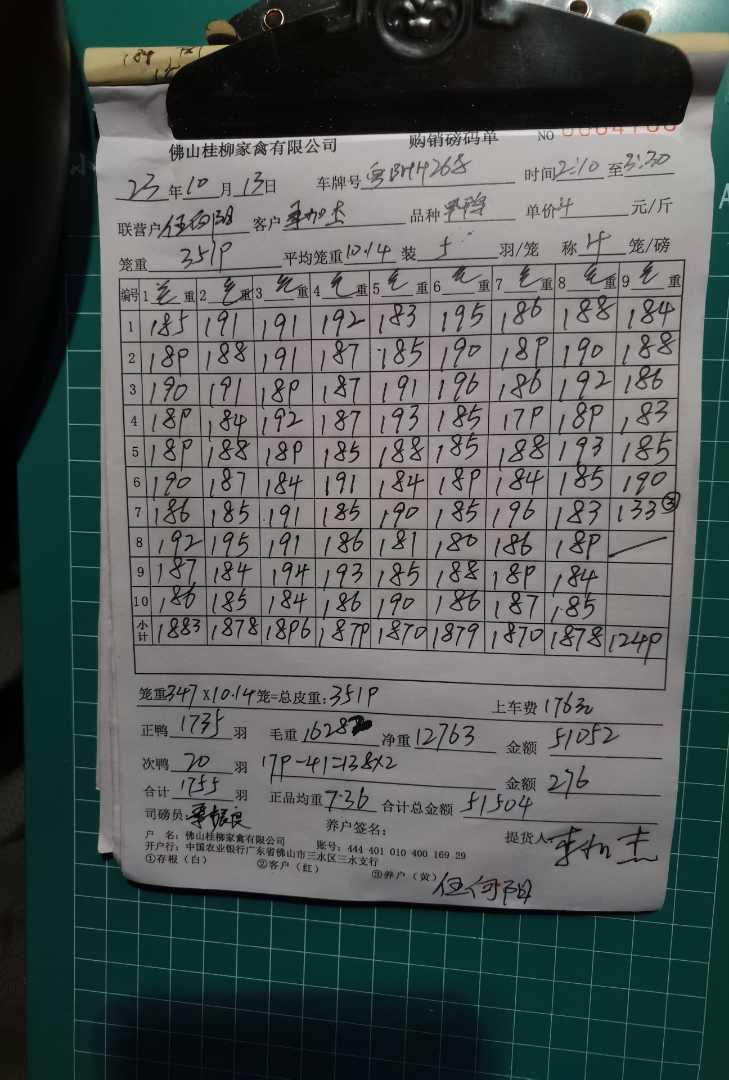 佛山桂柳家禽有限公司 购销磅码单 NO
23年10月13日 车牌号粤BH4268 时间2:10至3:30
联营户伍何阳 客户李加杰 品种 单价4元/斤
笼重351P 平均笼重10.14 装5羽/笼 称4笼/磅
编号 1毛重 2毛重 3毛重 4毛重 5毛重 6毛重 7毛重 8毛重 9毛重
1 185 191 191 192 183 195 186 188 184
2 18P 188 191 187 185 190 18P 190 188
3 190 191 18P 187 191 196 186 192 186
4 18P 184 192 187 193 185 17P 18P 183
5 18P 188 18P 185 188 185 188 193 185
6 190 187 184 191 184 18P 184 185 190
7 186 185 191 185 190 185 196 183 133③
8 192 195 191 186 181 180 186 18P
9 187 184 194 193 185 188 18P 184
10 186 185 184 186 190 186 187 185
小计 1883 1878 18P6 187P 1870 1879 1870 1878 124P
笼重347X10.14笼=总皮重:351P 上车费176元
正鸭1735羽 毛重1628 净重12763 金额51052
次鸭20羽 17P-41=138X2 金额276
合计1755羽 正品均重7.36 合计总金额51504
司磅员: 养户签名: 提货人:李加杰
户 名:佛山桂柳家禽有限公司 账号:444 401 010 400 169 29
开户行:中国农业银行广东省佛山市三水区三水支行
①存根(白) ②客户(红) ③养户(黄) 伍何阳